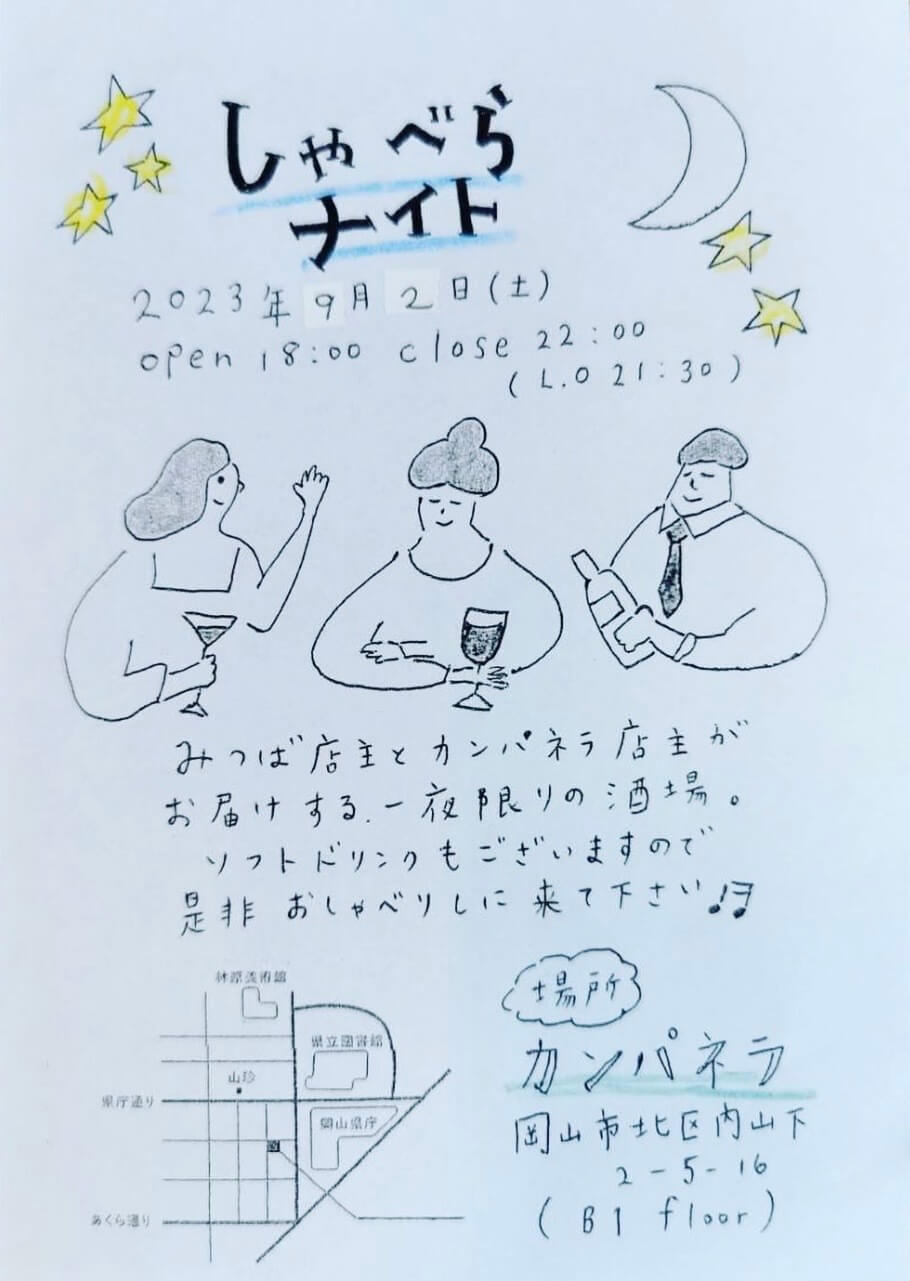 しゃべら
ナイト
2023年9月2日(土)
open 18:00 close 22:00
(L.O 21:30)
みつば店主とカンパネラ店主が
お届けする、一夜限りの酒場。
ソフトドリンクもございますので
是非おしゃべりしに来て下さい♫
林原美術館
県立図書館
山珍
県庁通り
岡山県庁
あくら通り
場所
カンパネラ
岡山市北区内山下
2-5-16
(B1 floor)